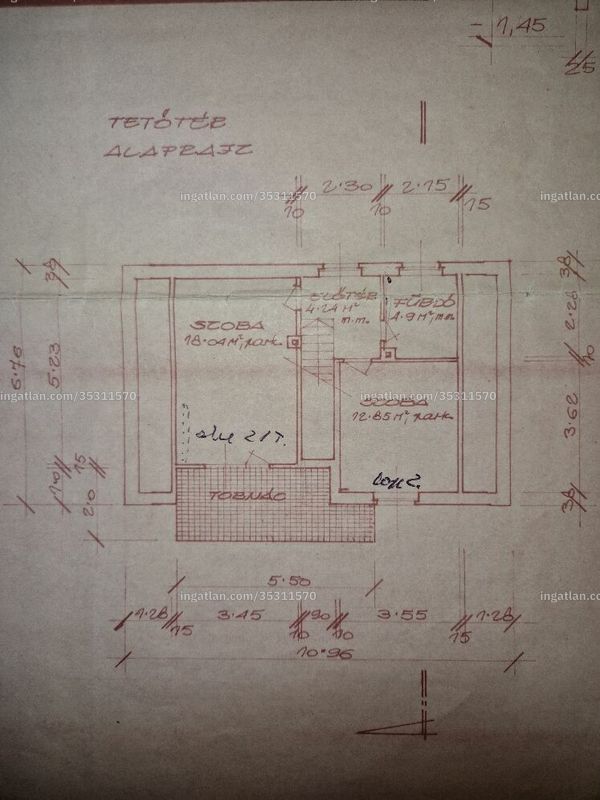 1,45
25
TETŐTÉR
ALAPRAJZ
2.30
2.15
10
10
15
ingatlan.com/35311570
ingatlan.com/35311570
38
38
ELŐTÉR
4.24 M²
m.m.
FÜRDŐ
4.9 M², mm.
SZOBA
18.04 M², park.
2.28
10
6.76
5.23
ingatlan.com/35311570
ingatlan.com/35311570
SZOBA
12.85 M², park.
3.62
15
TORNÁC
38
5.50
ingatlan.com/35311570
ingatlan.com/35311570
1.28
15
3.45
10
90
10
3.55
15
1.28
10.96